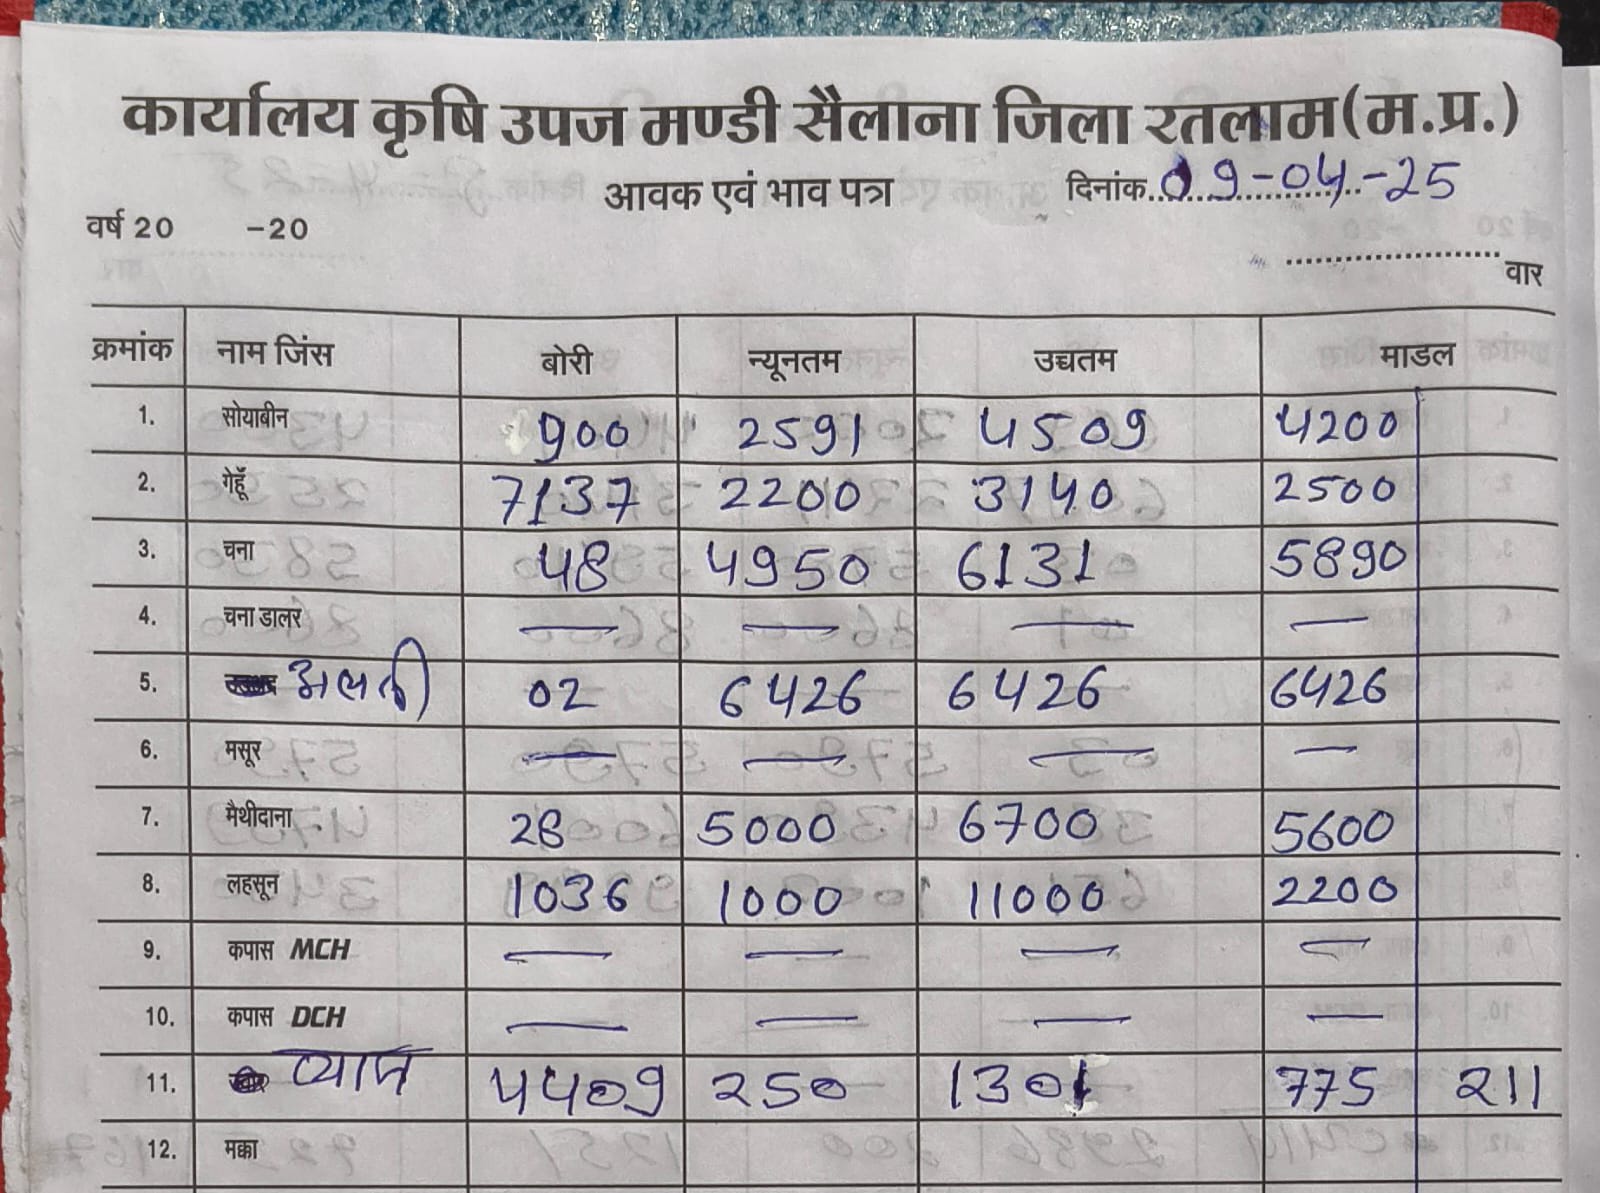 कार्यालय कृषि उपज मण्डी सैलाना जिला रतलाम(म.प्र.)
आवक एवं भाव पत्र दिनांक 09-04-25
वर्ष 20 -20
वार
क्रमांक नाम जिंस बोरी न्यूनतम उच्चतम माडल
1. सोयाबीन 900 2591 4509 4200
2. गेहूँ 7137 2200 3140 2500
3. चना 48 4950 6131 5890
4. चना डालर — — — —
5. अलसी 02 6426 6426 6426
6. मसूर — — — —
7. मैथीदाना 28 5000 6700 5600
8. लहसून 1036 1000 11000 2200
9. कपास MCH — — — —
10. कपास DCH — — — —
11. प्याज 4409 250 1301 775 211
12. मक्का